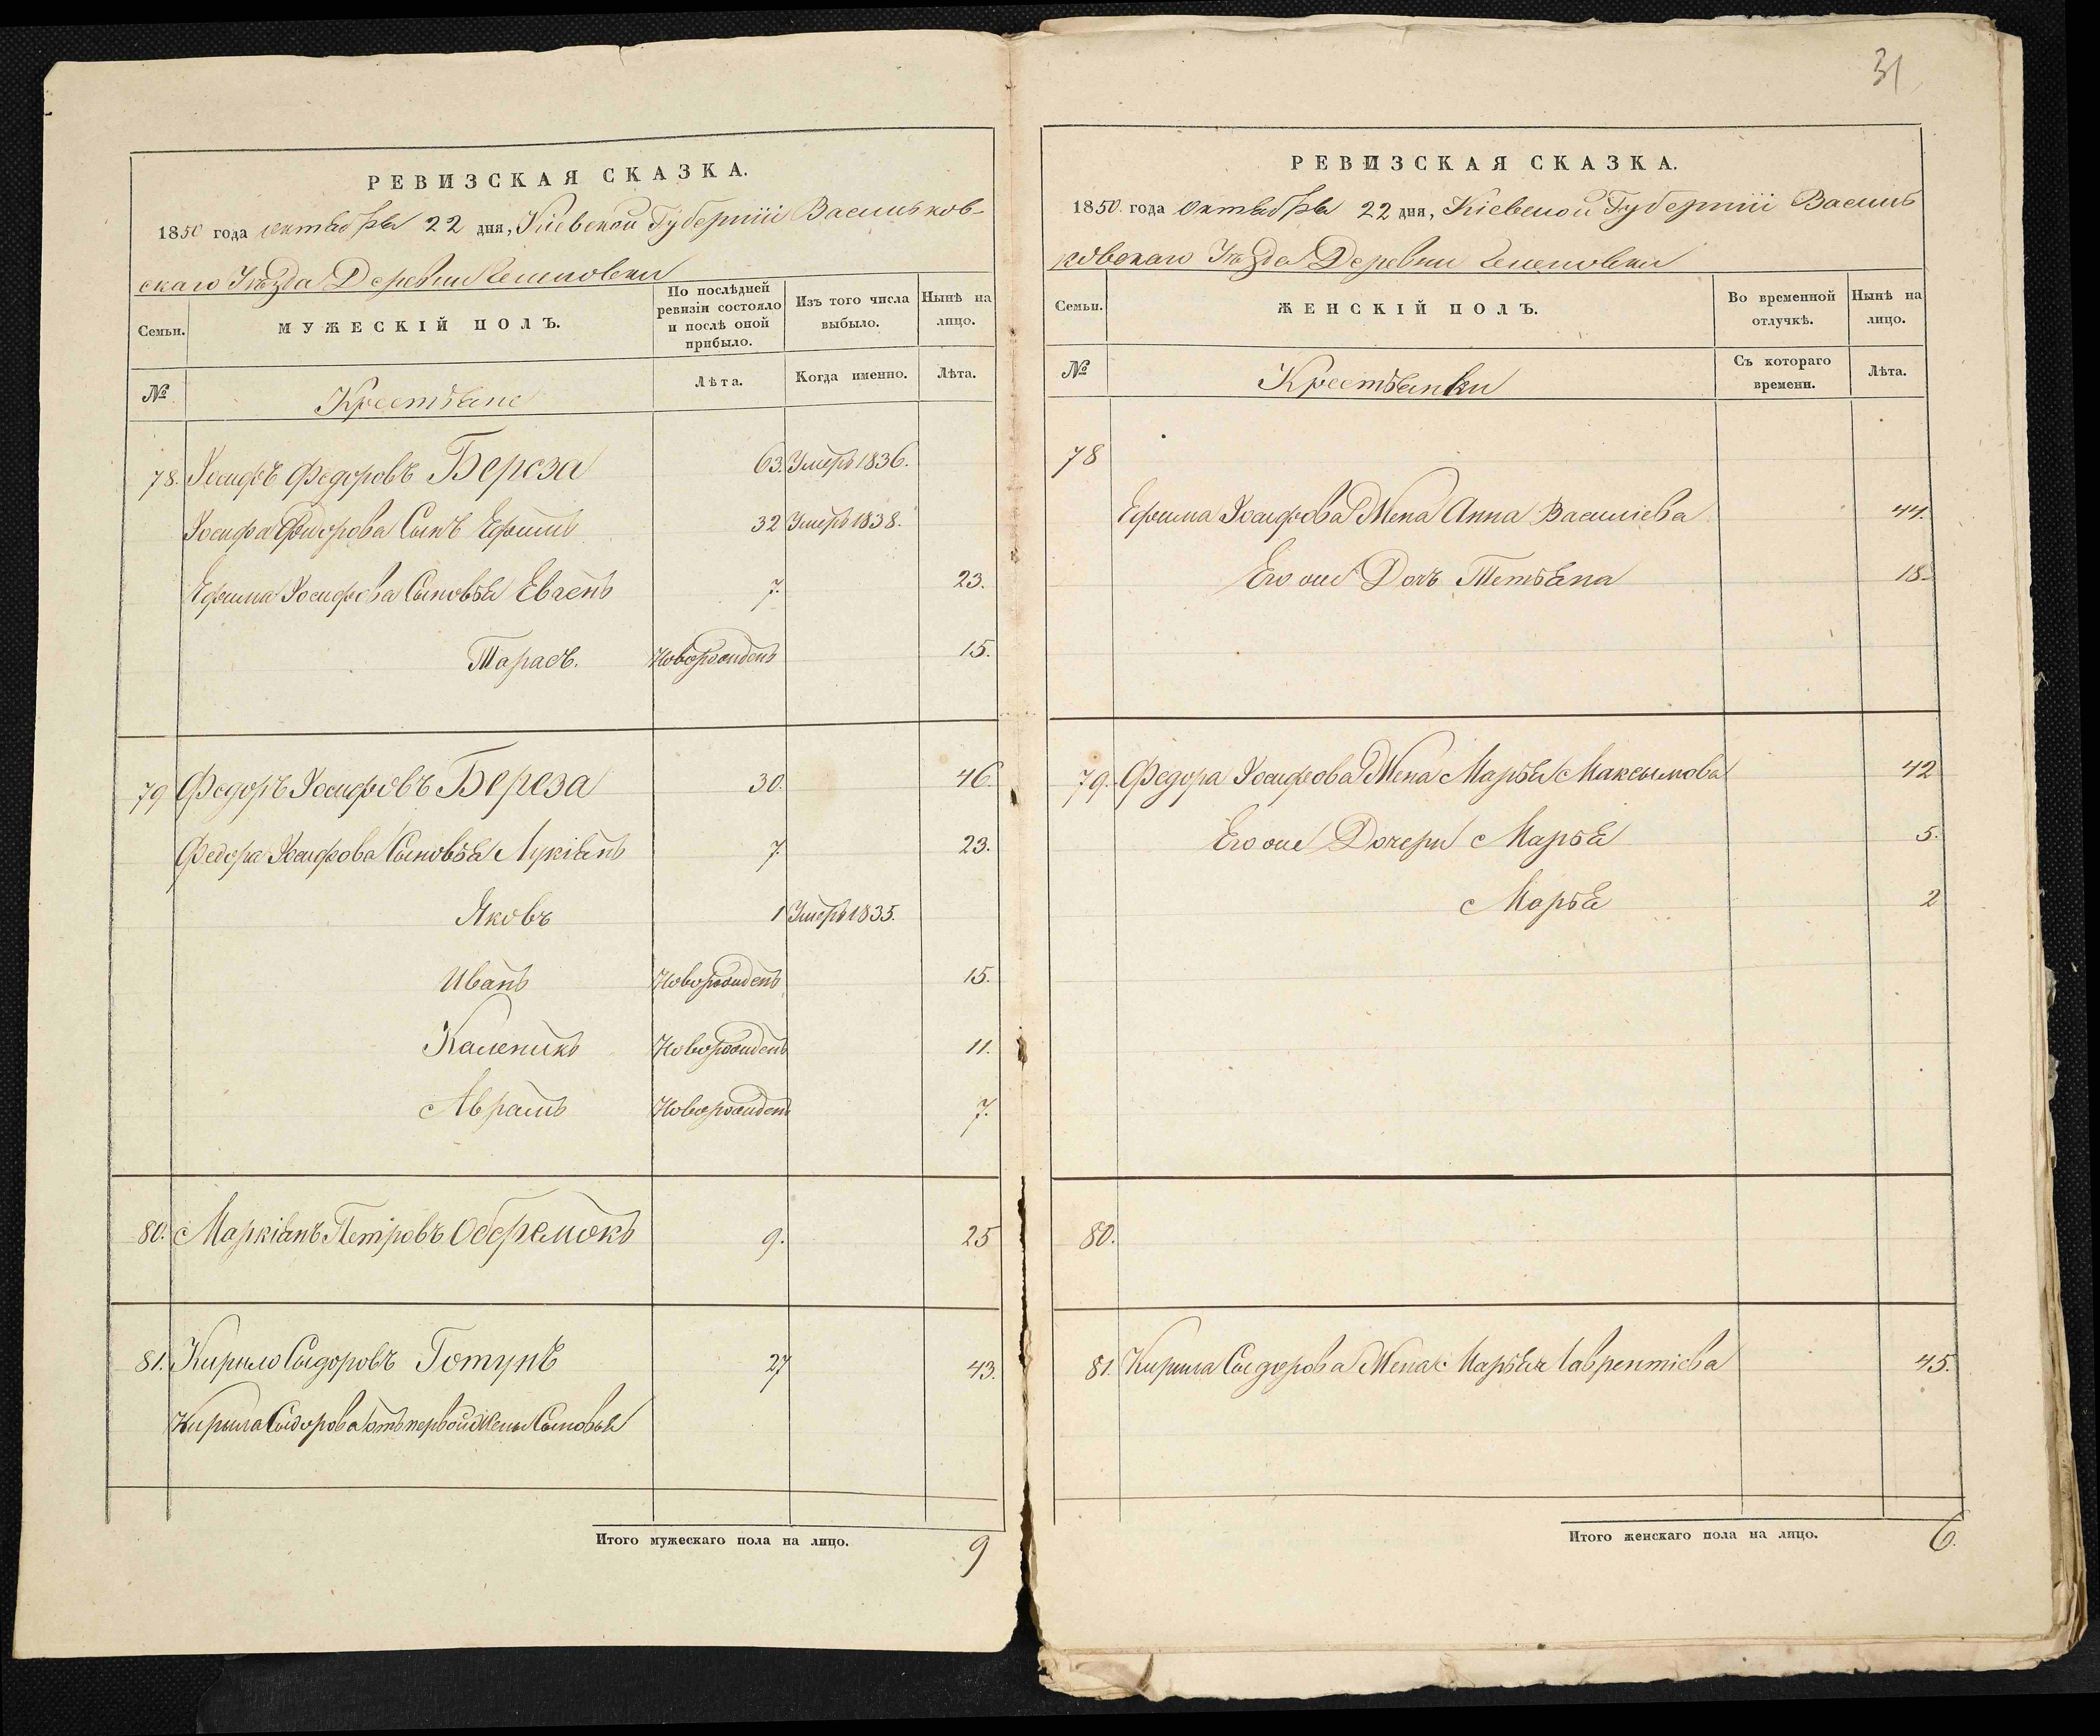 31
РЕВИЗСКАЯ СКАЗКА.
1850 года октября 22 дня, Кіевской Губерніи Васильков-
скаго Уѣзда Деревни
Семьи.
МУЖЕСКІЙ ПОЛЪ.
По послѣдней ревизіи состояло и послѣ оной прибыло.
Изъ того числа выбыло.
Нынѣ на лицо.
№
Крестьяне
Лѣта.
Когда именно.
Лѣта.
78. Іосифъ Федоровъ Береза 63. Умеръ 1836.
Іосифа Федорова Сынъ Ефимъ 32 Умеръ 1838.
Ефима Іосифова Сыновья Евгенъ 7. 23.
Тарасъ. Новорожденъ 15.
79 Федоръ Іосифовъ Береза 30. 46.
Федора Іосифова Сыновья Лукіянъ 7. 23.
Яковъ 1 Умеръ 1835.
Иванъ Новорожденъ 15.
Каленикъ Новорожденъ 11.
Аврамъ Новорожденъ 7.
80. Маркіянъ Петровъ Оберемокъ 9. 25
81. Кирыло Сыдоровъ Готунъ 27 43.
Кирыла Сыдорова отъ первой Жены Сыновья
Итого мужескаго пола на лицо. 9
РЕВИЗСКАЯ СКАЗКА.
1850. года октября 22 дня, Кіевской Губерніи Василь
ковскаго Уѣзда Деревни
Семьи.
ЖЕНСКІЙ ПОЛЪ.
Во временной отлучкѣ.
Нынѣ на лицо.
№
Крестьянки
Съ котораго времени.
Лѣта.
78
Ефима Іосифова Жена Анна Василіева 44.
Его же Дочь Тетьяна 18.
79. Федора Іосифова Жена Марья Максымова 42
Его же Дочери Марья 5.
Марья 2
80.
81. Кирыла Сыдорова Жена Марья Лаврентіева 45.
Итого женскаго пола на лицо. 6.